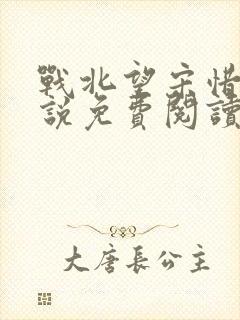 戰北望宋惜
說免費閱讀
大唐長公主